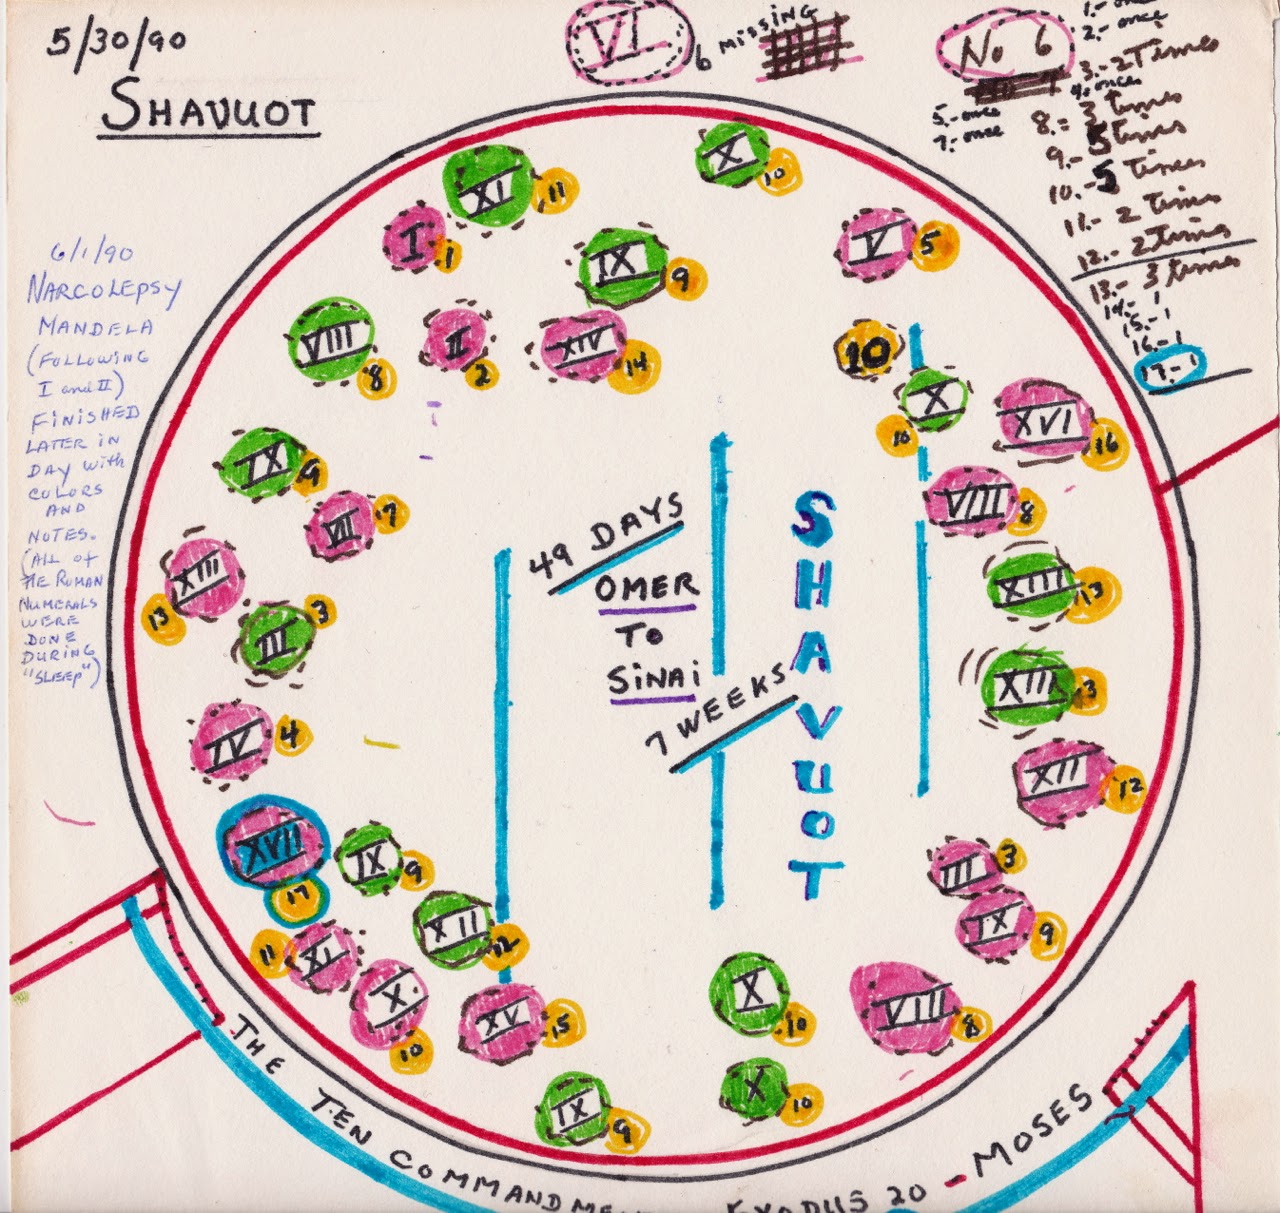 5/30/90
SHAVUOT
VI
6
MISSING
No 6
1.- once
2.- once
3.- 2 Times
4.- once
5.- once
7.- once
8.= 3 times
9.- 5 times
10.- 5 times
11.- 2 times
12.- 2 times
13.- 3 times
14.- 1
15.- 1
16.- 1
17.- 1
6/1/90
NARCOLEPSY
MANDELA
(FOLLOWING
I and II)
FINISHED
LATER IN
DAY with
COLORS
AND
NOTES.
(ALL of
THE ROMAN
NUMERALS
WERE
DONE
DURING
"SLEEP")
XI 11
X 10
I 1
V 5
IX 9
VIII 8
II 2
XIV 14
10
X 10
XVI 16
IX 9
VII 7
VIII 8
XIII 13
III 3
XIII 13
XIII 13
IV 4
XII 12
XVII 17
IX 9
III 3
XII 12
IX 9
XI 11
X 10
XV 15
X 10
VIII 8
IX 9
X 10
49 DAYS
OMER
TO
SINAI
7 WEEKS
SHAVUOT
THE TEN COMMANDME
EXODUS 20 - MOSES